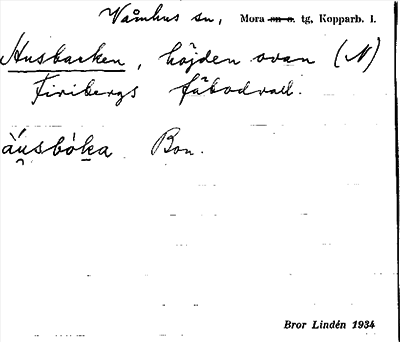 Våmhus sn, Mora sn o. tg, Kopparb. l.
Husbacken, höjden ovan (N)
Firibergs fäbodvall.
ä̀usbòka Bon.
Bror Lindén 1934